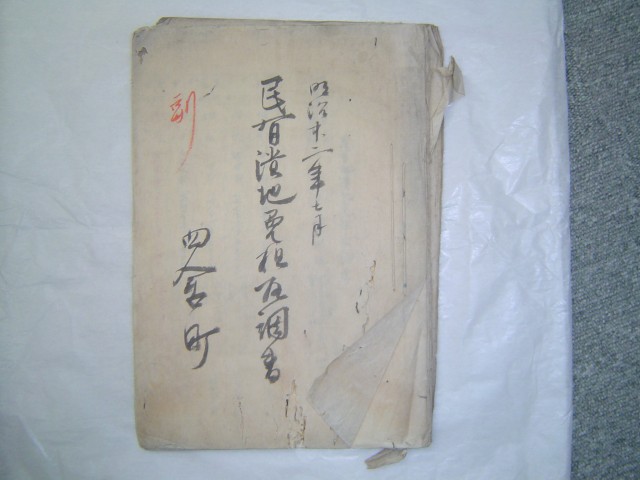 明治十二年七月
民有潰地免租取調書
四倉町
副